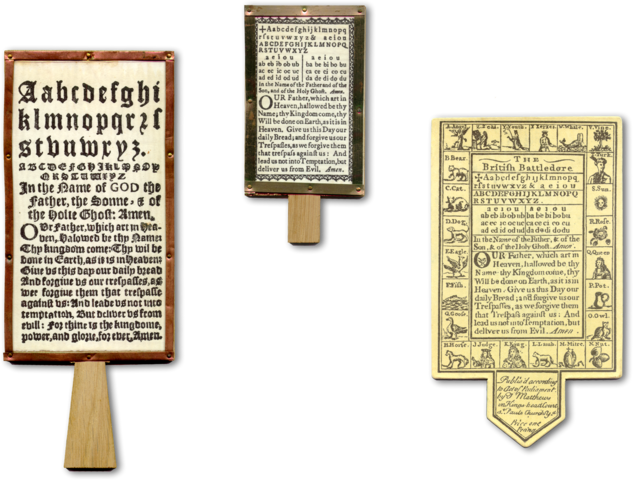 Aabcdefghi
klmnopqrzſ
stvuwxyz.
In the Name of GOD the
Father, the Sonne, & of
the Holie Ghost: Amen.
OVr Father, which art in Hea-
ven, Halowed be thy Name:
Thy kingdom come: Thy wil be
done in Earth, as it is in Heaven:
Give us this day our daily bread
And forgive us our trespasses, as
wee forgive them that trespasse
against us: And lead us not into
temptation, But deliver us from
evill: For thine is the kingdome,
power, and glorie, for ever, Amen.
+Aabcdefghijklmnopq
rſstuvwxyz& aeiou
ABCDEFGHIJKLMNOPQ
RSTUVWXYZ
a e i o u a e i o u
ab eb ib ob ub ba be bi bo bu
ac ec ic oc uc ca ce ci co cu
ad ed id od ud da de di do du
In the Name of the Father and of the
Son, and of the Holy Ghost. Amen.
OUR Father, which art in
Heaven, hallowed be thy
Name; thy Kingdom come, thy
Will be done on Earth, as it is in
Heaven. Give us this Day our
daily Bread; and forgive us our
Treſpaſſes, as we forgive them
that treſpaſs againſt us: And
lead us not into Temptation, but
deliver us from Evil. Amen.
T. Ving.
B. Bear.
C. Cat.
D. Dog.
E. Eagle
F. Fish.
G. Goose.
H. Horse. J. Judge. K. King. L. Lamb. M. Mitre. N. Nut.
S. Sun.
R. Rose.
Q. Queen
P. Pot.
O. Owl.
THE
British Battledore
+Aabcdefghijklmnopq
rſstuvwxyz & a e i o u
ABCDEFGHIJKLMNOPQ
RSTUVWXYZ.
a e i o u a e i o u
ab eb ib ob ub ba be bi bo bu
ac ec ic oc uc ca ce ci co cu
ad ed id od ud da de di do du
In the Name of the Father, & of the
Son, & of the Holy Ghost. Amen.
OUR Father, which art in
Heaven, hallowed be thy
Name thy Kingdom come, thy
Will be done on Earth, as it is in
Heaven. Give us this Day our
daily Bread; and forgive us our
Treſpaſſes, as we forgive them
that Treſpaſs against us: And
lead us not into Temptation, but
deliver us from Evil. Amen.
Publish'd according
to Act of Parliament
by J. Matthews
in Kings head Court
St Pauls Church Yd
Price one
Penny